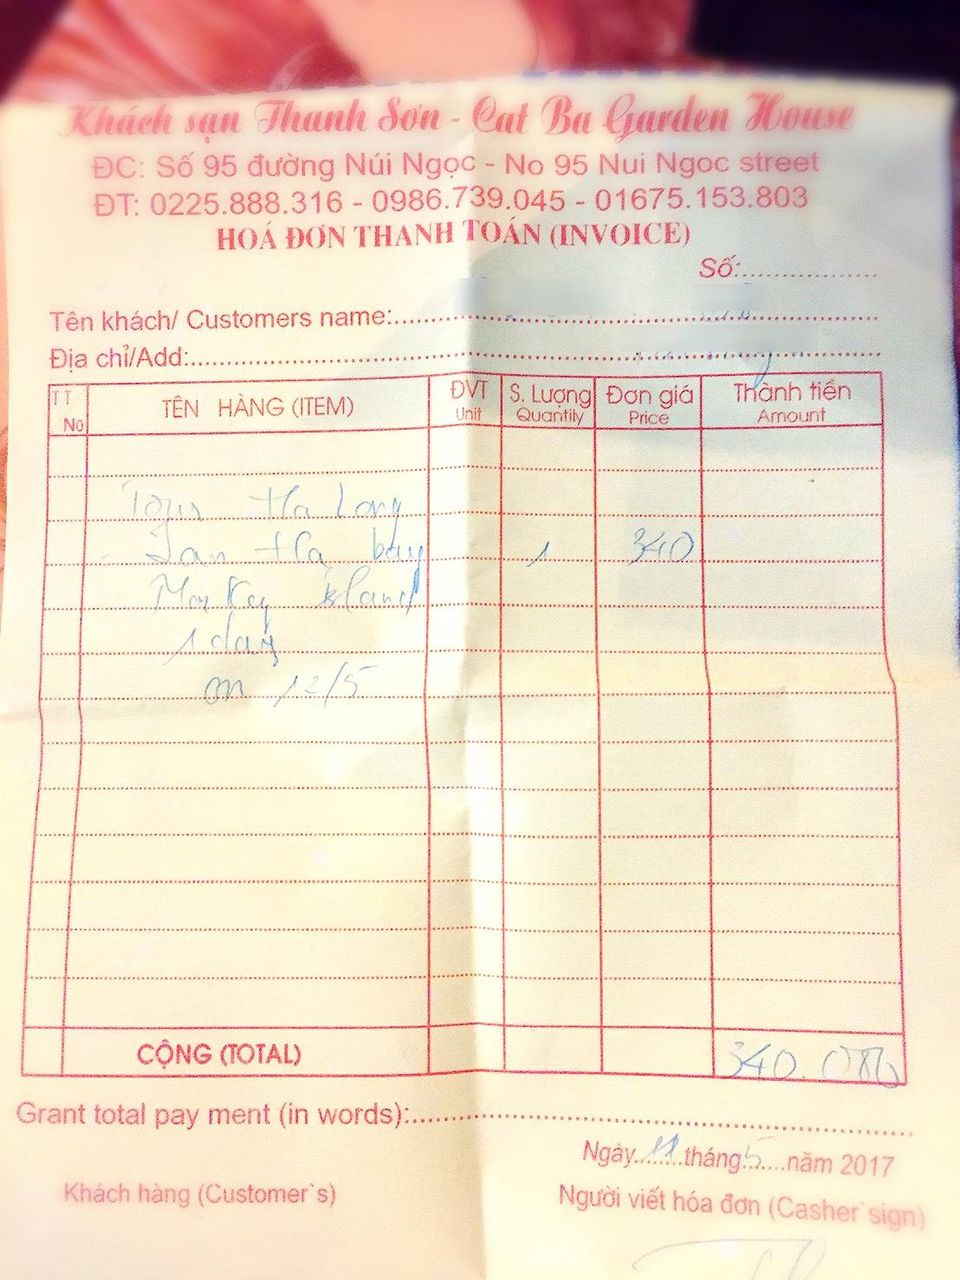 Khách sạn Thanh Sơn - Cat Ba Garden House
ĐC: Số 95 đường Núi Ngọc - No 95 Nui Ngoc street
ĐT: 0225.888.316 - 0986.739.045 - 01675.153.803
HOÁ ĐƠN THANH TOÁN (INVOICE)
Số:..................
Tên khách/ Customers name:..................
Địa chỉ/Add:..................
TT No TÊN HÀNG (ITEM) ĐVT Unit S. Lượng Quantily Đơn giá Price Thành tiền Amount
Tour Ha Long
- Lan Hạ bay 1 340
Monkey island
1 day
on 12/5
CỘNG (TOTAL) 340.000
Grant total pay ment (in words):..................
Ngày 11 tháng 5 năm 2017
Khách hàng (Customer`s) Người viết hóa đơn (Casher`sign)